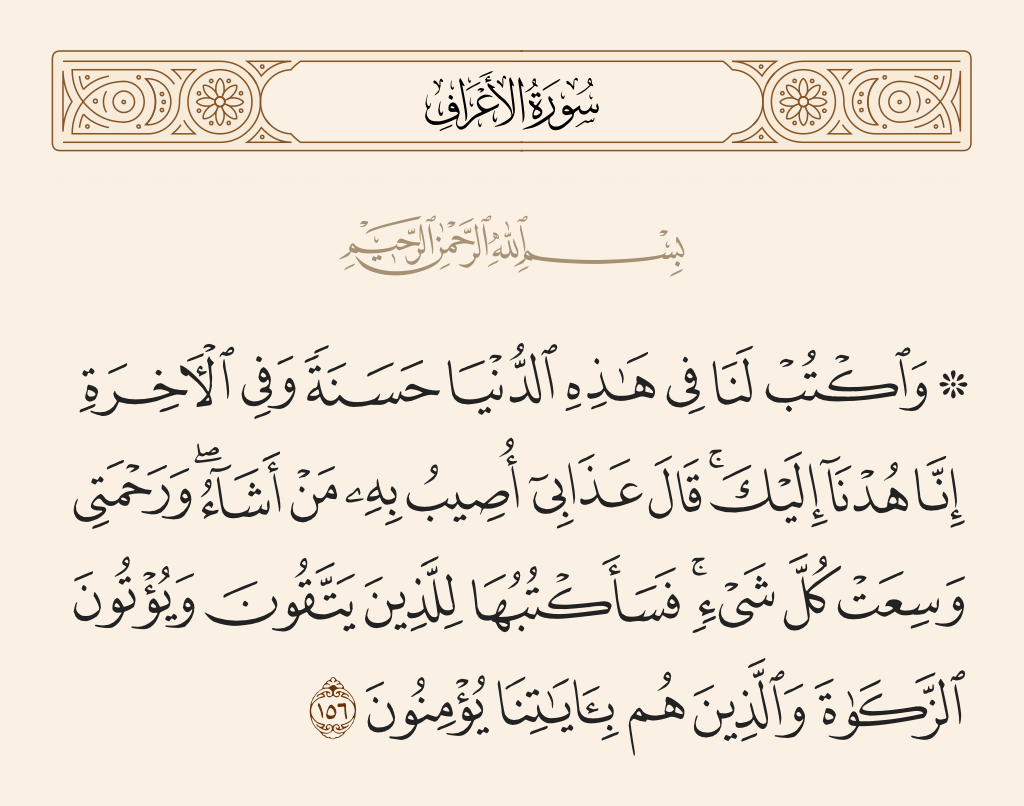 سُورَةُ الأَعْرَافِ
بِسْمِ ٱللَّهِ ٱلرَّحْمَٰنِ ٱلرَّحِيمِ
۞ وَٱكْتُبْ لَنَا فِى هَـٰذِهِ ٱلدُّنْيَا حَسَنَةً وَفِى ٱلْـَٔاخِرَةِ
إِنَّا هُدْنَآ إِلَيْكَ ۚ قَالَ عَذَابِىٓ أُصِيبُ بِهِۦ مَنْ أَشَآءُ ۖ وَرَحْمَتِى
وَسِعَتْ كُلَّ شَىْءٍ ۚ فَسَأَكْتُبُهَا لِلَّذِينَ يَتَّقُونَ وَيُؤْتُونَ
ٱلزَّكَوٰةَ وَٱلَّذِينَ هُم بِـَٔايَـٰتِنَا يُؤْمِنُونَ ١٥٦